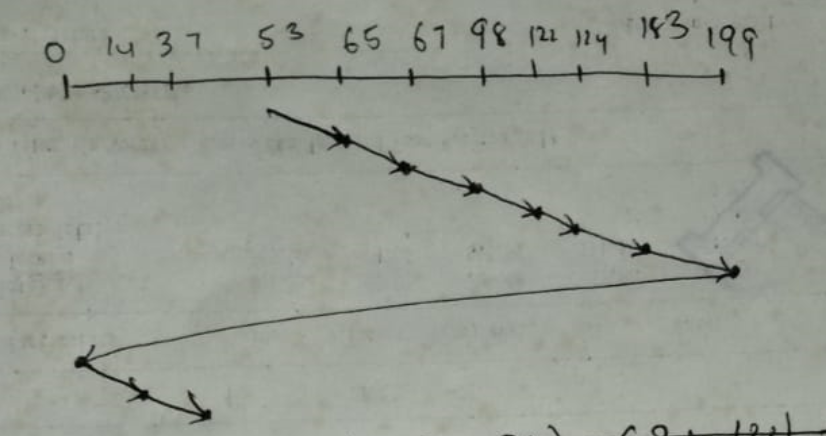 0 14 37 53 65 67 98 122 124 183 199